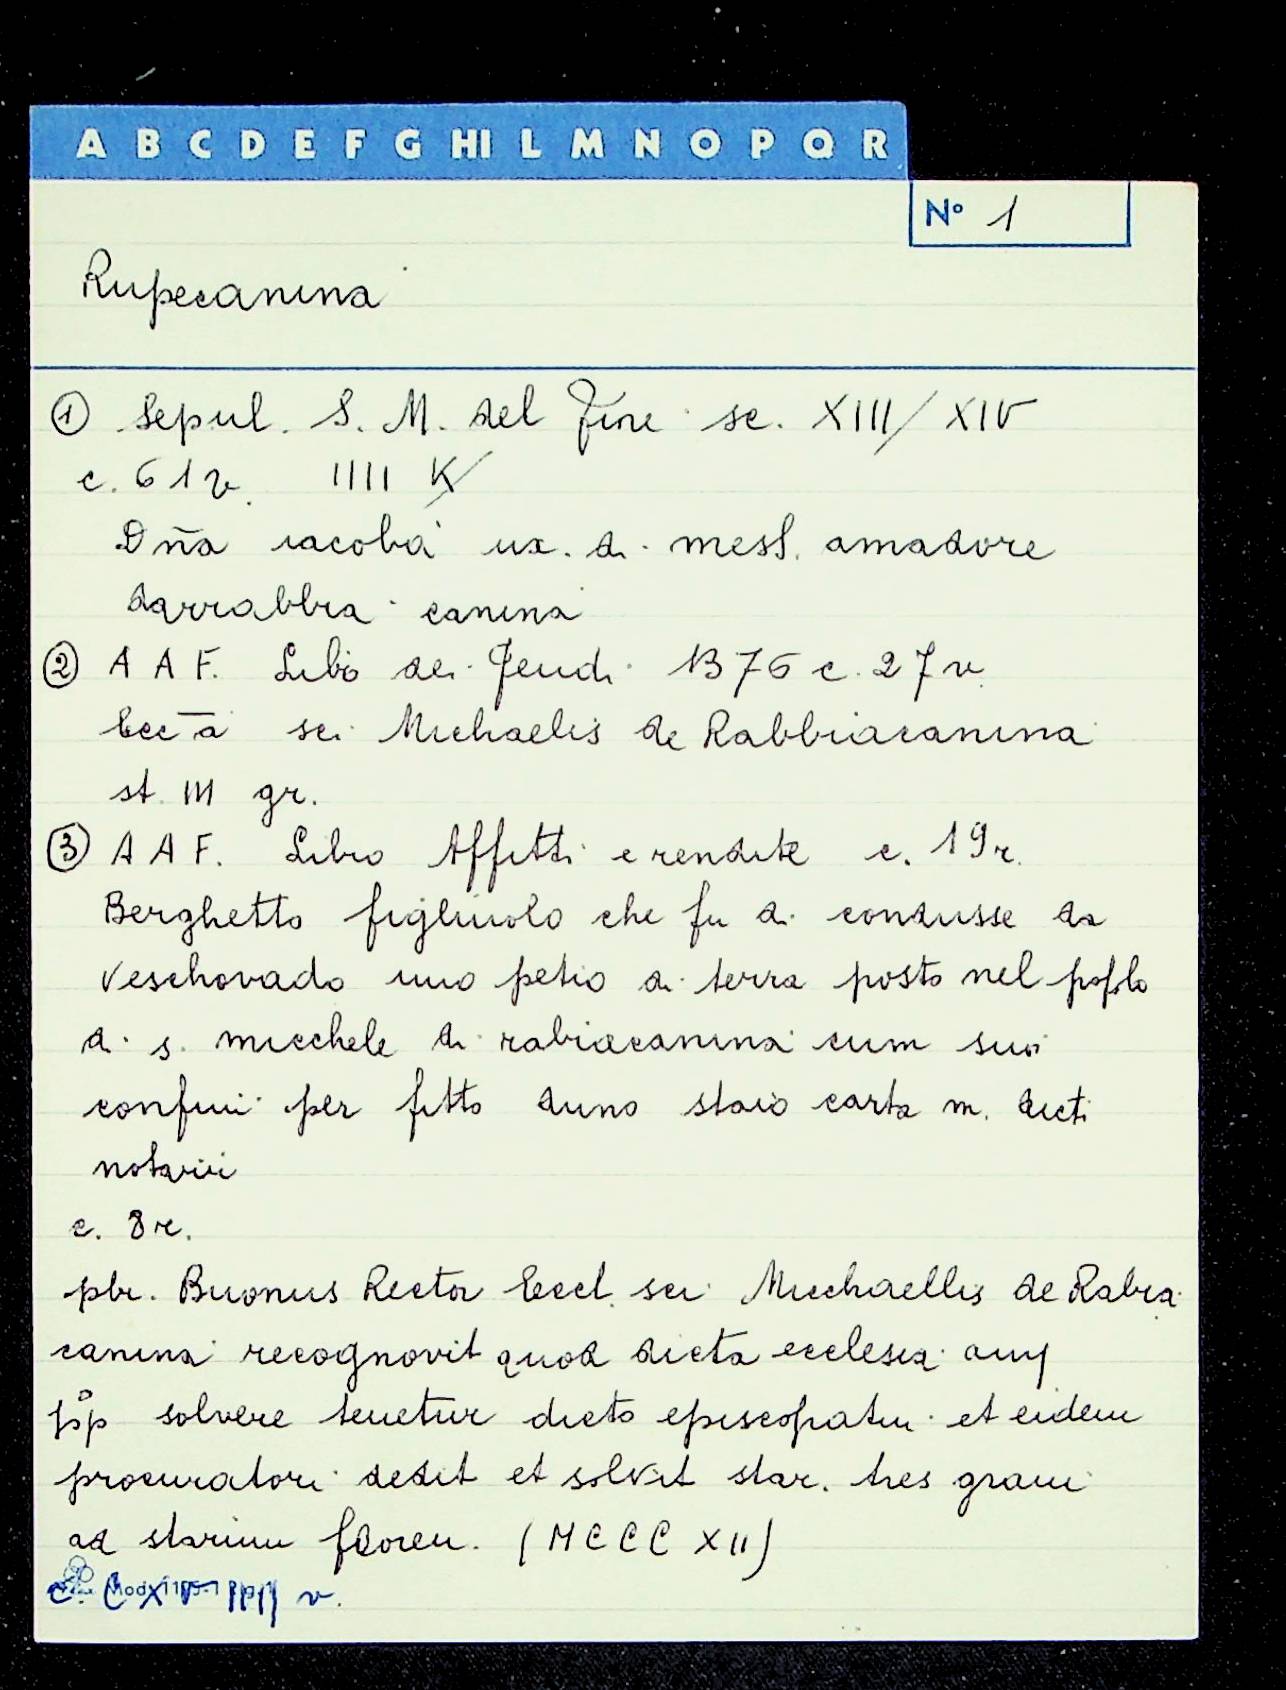 A B C D E F G HI L M N O P Q R
N° 1
Rupecanina
① Sepul. S. M. del Fiore sc. XIII/XIV
c. 61v. IIII K
Dña iacoba ux. di mess. amadore
darrabbia canina
② A A F. Libro dei Feudi 1376 c. 27v.
Eccā sci Michaelis de Rabbiacanina
st. III gr.
③ A A F. Libro Affitti e rendite c. 19r.
Berghetto figliuolo che fu di condusse da
Veschovado uno petio di terra posto nel popolo
di s. micchele di rabiacanina cum suoi
confini per fitto duno staio carta m. dicti
notarii
c. 8r.
pbr. Buonus Rector Eccl. sci Micchaellis de Rabia
canina recognovit quod dicta ecclesia
solvere tenetur dicto episcopatui et eidem
procuratori dedit et solvit star. tres grani
ad starium floren. (MCCCXII)
v.